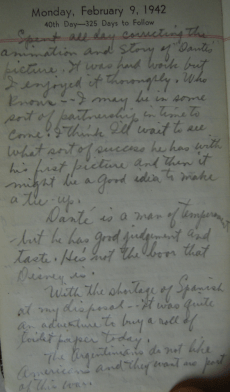 Monday, February 9, 1942
40th Day—325 Days to Follow
Spent all day correcting the
animation and story of "Dante"
picture. It was hard work but
I enjoyed it thoroughly. Who
knows -- I may be in some
sort of partnership in time to
come. I think I'll wait to see
what sort of success he has with
his first picture and then it
might be a good idea to make
a tie-up.
Dante is a man of temperament
- but he has good judgment and
taste. He's not the boor that
Disney is.
With the shortage of Spanish
at my disposal -- it was quite
an adventure to buy a roll of
toilet paper today.
The Argentineans do not like
Americans and they want no part
of this war.